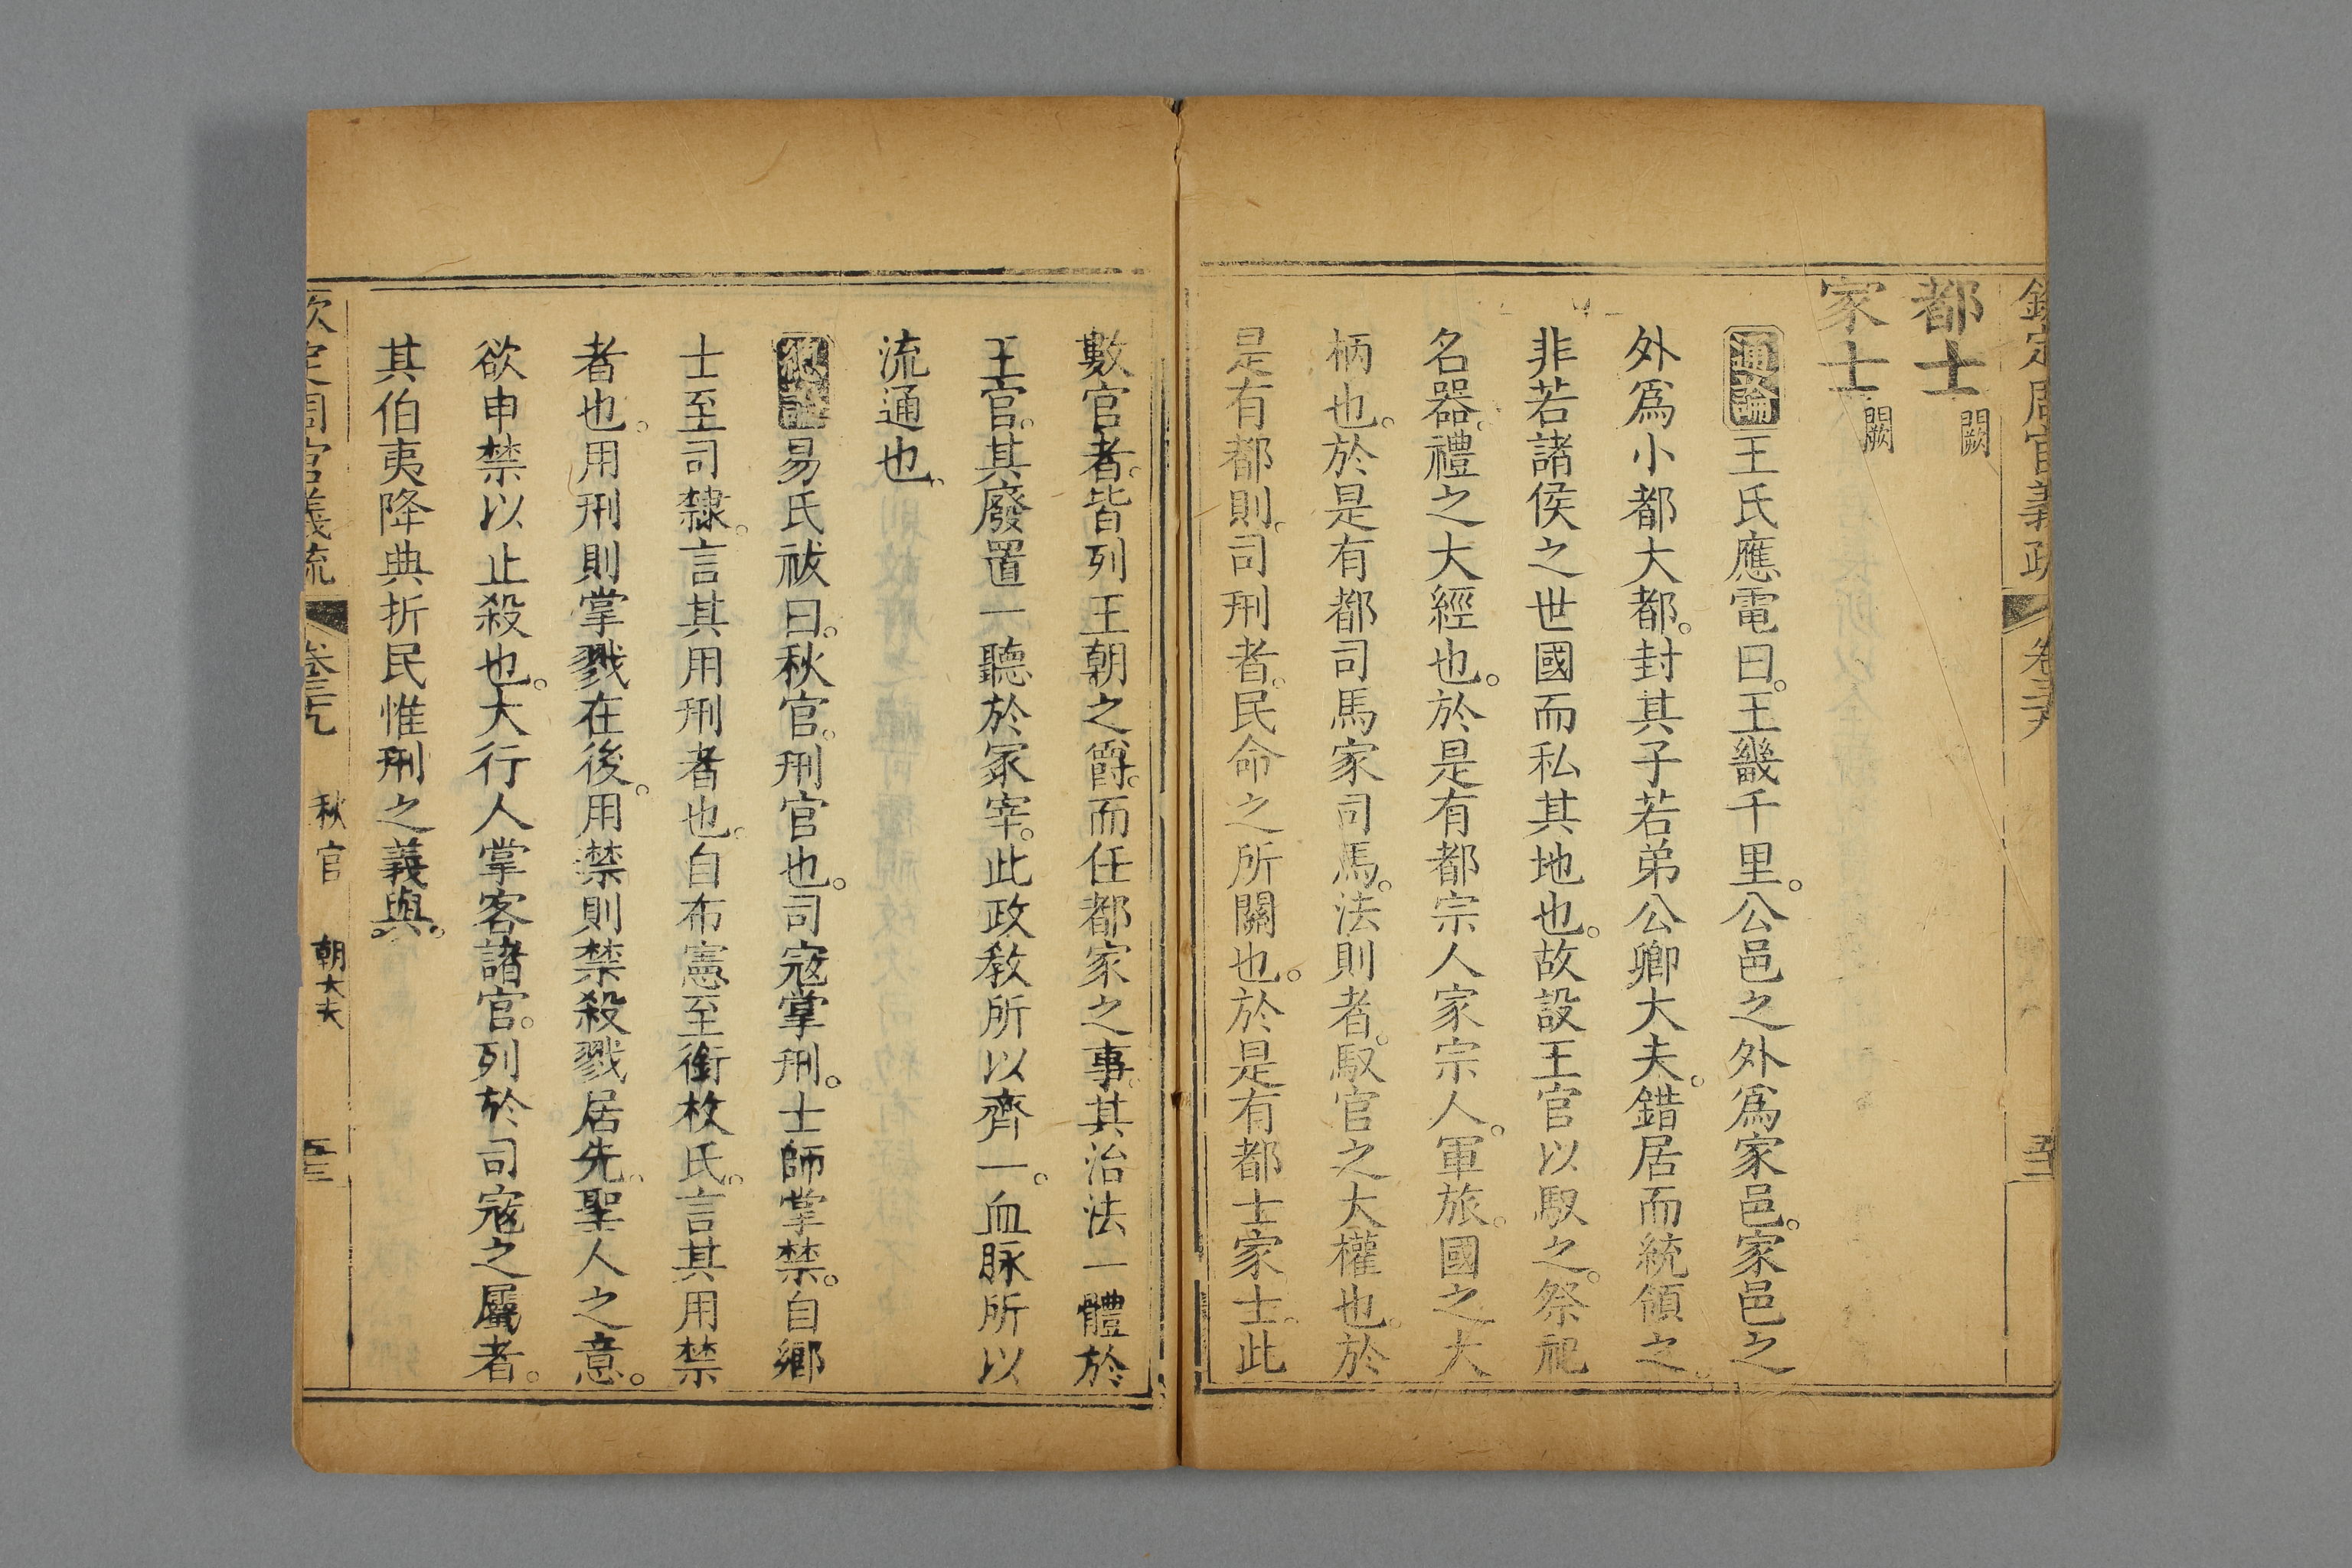 欽定周官義疏 卷三十九 五十二
都士 闕
家士 闕
通論 王氏應電曰王畿千里公邑之外為家邑家邑之
外為小都大都封其子若弟公卿大夫錯居而統領之
非若諸侯之世國而私其地也故設王官以馭之祭祀
名器禮之大經也於是有都宗人家宗人軍旅國之大
柄也於是有都司馬家司馬法則者馭官之大權也於
是有都則司刑者民命之所關也於是有都士家士此
數官者皆列王朝之爵而任都家之事其治法一體於
王官其廢置一聽於冢宰此政教所以齊一血脉所以
流通也
總論 易氏祓曰秋官刑官也司寇掌刑士師掌禁自鄉
士至司隸言其用刑者也自布憲至銜枚氏言其用禁
者也用刑則掌戮在後用禁則禁殺戮居先聖人之意
欲申禁以止殺也大行人掌客諸官列於司寇之屬者
其伯夷降典折民惟刑之義與
欽定周官義疏 卷三十九 秋官 朝大夫 五十三